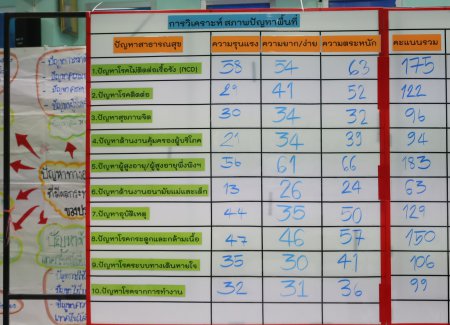 การวิเคราะห์ สภาพปัญหาพื้นที่
ปัญหาสาธารณสุข ความรุนแรง ความยาก/ง่าย ความตระหนัก คะแนนรวม
1.ปัญหาโรคไม่ติดต่อเรื้อรัง (NCD) 58 54 63 175
2.ปัญหาโรคติดต่อ 29 41 52 122
3.ปัญหาสุขภาพจิต 30 34 32 96
4.ปัญหาด้านงานคุ้มครองผู้บริโภค 21 34 39 94
5.ปัญหาผู้สูงอายุ/ผู้สูงอายุพึ่งพิงฯ 56 61 66 183
6.ปัญหาด้านงานอนามัยแม่และเด็ก 13 26 24 63
7.ปัญหาอุบัติเหตุ 44 35 50 129
8.ปัญหาโรคกระดูกและกล้ามเนื้อ 47 46 57 150
9.ปัญหาโรคระบบทางเดินหายใจ 35 30 41 106
10.ปัญหาโรคจากการทำงาน 32 31 36 99